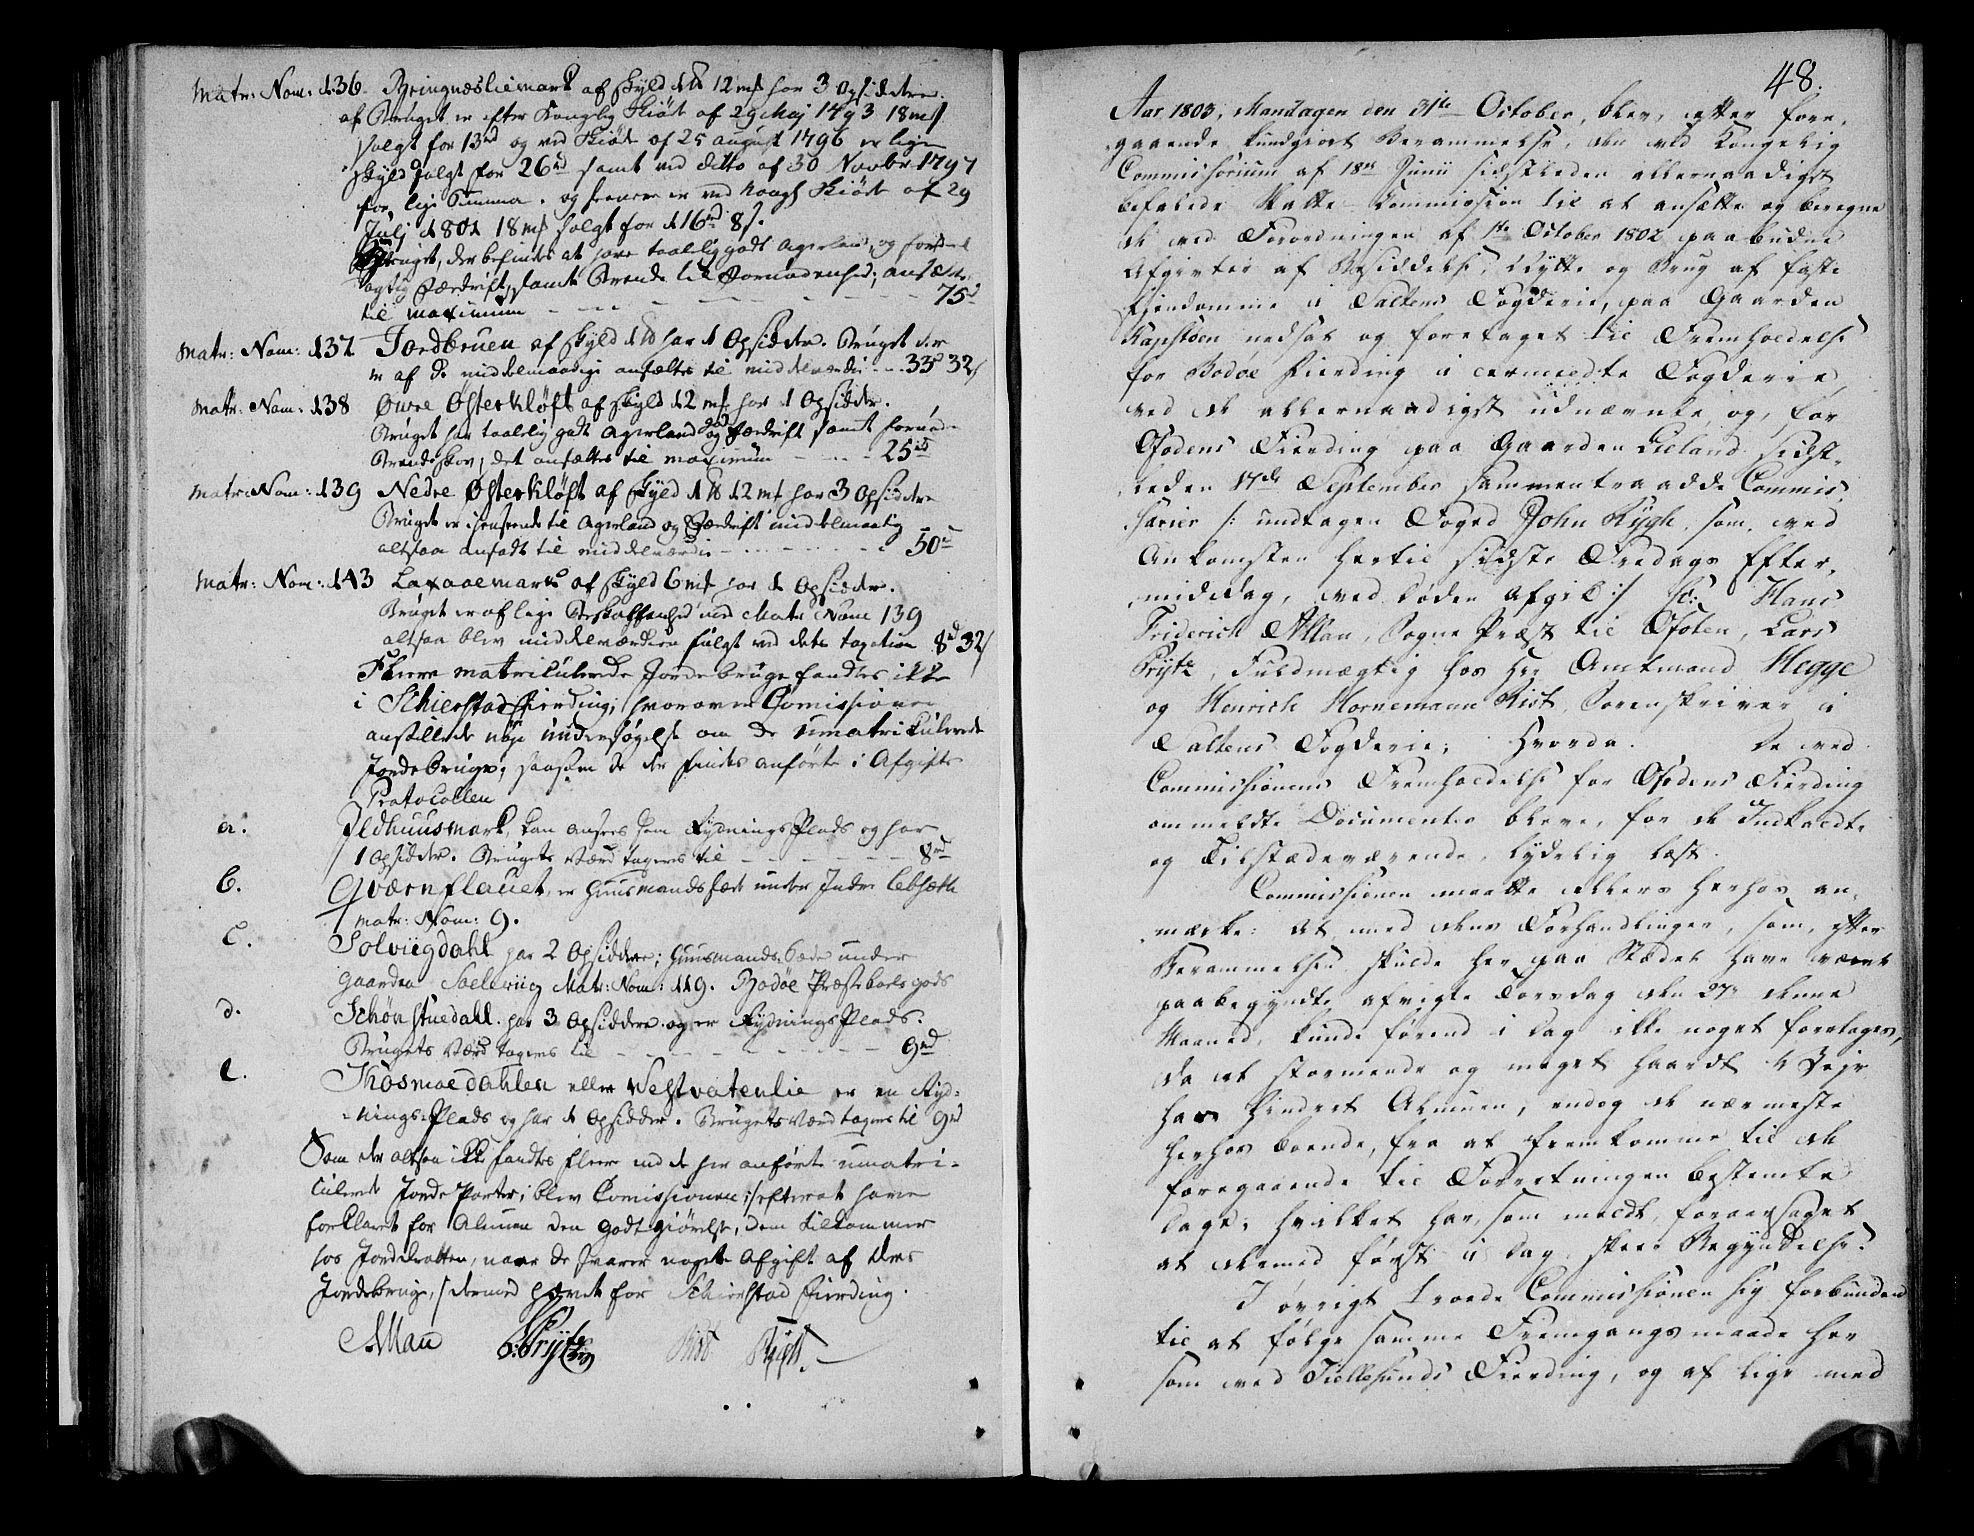 Matr: Nom: 136. Bringnæsliemark af Skyld 1 12 mk har 3 Opsiddere.
af Bruget er efter Kongelig Skiøt af 29 Maj 1793 18 mk
solgt for 13rd og ved Skiøt af 25 august 1796 er lige
Skyld solgt for 26rd samt ved ditto af 30 Novbr. 1797
for lige Summa. og fremmer er ved Skiøde af 29
Julj 1801 18 mk solgt for 116rd 8s.
Bruget, der befindes at have taalelig godt agerland og
Fædrift, samt Brende til Fornødenhed; ansættes
til maximum - - - 75rd
Matr: Nom: 137 Jordbruen af Skyld 1 har 1 Opsidder. Bruget der
er af de middelmaadige ansættes til middelværdie - - 33rd 32s
Matr: Nom: 138 Øvre Østerkløft af Skyld 12 mk har 1 Opsidder.
Bruget har taalelig godt agerland og god Fædrift samt fornøden
Brendeskov, det ansættes til maximum - - - 25rd
Matr: Nom: 139 Nedre Østerkløft af Skyld 1 12 mk har 3 Opsiddere
Bruget er i henseende til Agerland og Fædrift middelmaatig
altsaa ansadt til middelværdie - - - 50rd
Matr: Nom: 143 Laxaaemark af Skyld 6 mk har 1 Opsidder.
Bruget er af lige Beskaffenhed med Matr: Nom 139
altsaa blev middelværdien fulgt ved dets taxation 8rd 32s
Flere matriculerede Jordebruge fandtes ikke
i Schierstad Fierding; hvorover Comissionen
anstillede nøje undersøgelse om de umatriculerede
Jordebruge, saasom de der findes anførte i Afgifts
Protocollen
a. Ildhuusmark, kan ansees som Rydnings Plads og har
1 Opsidder. Brugets Værd tageres til - - - 8rd
b. Qværnflauet, er Huusmandssæde under Indre
matr: Nom: 9.
c. Solviigdahl har 2 Opsiddere; Huusmands Sæde under
Gaarden Soelviig Matr: Nom: 119. Bodøe Præstebols gods
d. Schønstuedahl. har 3 Opsiddere og er Rydnings Plads.
Brugets Værd tageres til - - - 9rd
e. Thosmoedahlen eller Vestvatenlie er en Ryd-
nings-Plads og har 1 Opsidder. Brugets Værd tageres til 9rd
Som der altsaa ikke fandtes flere end de her anførte umatri-
culerede Jorde Parter; blev Comissionen; efterat have
forklaret for Almuen den godtgiørelse, dem tilkommer
hos Jorddrotten, naar de svarer nogen Afgift af deres
Jordebruge, dermed hævet for Schierstad Fierding.
AMan Pryts Rist
48.
Aar 1803, Mandagen den 31te October, blev, efter fore-
gaaende kundgiort Berammelse, den ved Kongelig
Commissorium af 18de Junii sidstleden allernaadigst
befalede Skatte Commission til at ansætte og beregne
de ved Forordningen af 1ste October 1802 paabudne
Afgivter af Besiddelse, Nytte og Brug af faste
Eiendomme i Saltens Fogderie, paa Gaarden
Kapstøen nedsat og foretaget til Fremholdelse
for Bodøe Fierding i ermeldte Fogderie,
ved de allernaadigst udnævnte, og, for
Ofodens Fierding paa Gaarden Lieland sidst-
leden 17de September sammentraadde Commis-
sarier /: undtagen Foged John Rygh, som, ved
Ankomsten hertil sidste Fredags Efter-
middag, ved Døden Afgik :/ sc: Hans
Friderich AMan, Sogne Præst til Ofoten, Lars
Pryts, Fuldmægtig hos Hr. Amtmand Hegge
og Henrich Hornemann Rist, Sorenskriver i
Saltens Fogderie; Hvorda. De ved
Commissionens Fremholdelse for Ofodens Fierding
ommeldte Documenter bleve, for de Indkaldte
og Tilstædeværende, lydelig læst.
Commissionen maatte ellers herhos an-
mærke: At med dens Forhandlinger, som, efter
Berammelsen skulde her paa Stædet have været
paabegyndte afvigte Torsdag den 27de denne
Maaned, kunde førend i Dag ikke noget foretages,
da et stormende og meget haardt Vejr
har hindret Almuen, endog de nærmeste
herhos boende, fra at fremkomme til de
foregaaende til Forretningen bestemte
Dage; hvilket har, som meldt, foraarsaget
at dermed først i Dag skeer Begyndelse.
I øvrigt troede Commissionen sig forbunden
til at følge samme Fremgangsmaade her
som ved Tiellesunds Fierding, og af lige med